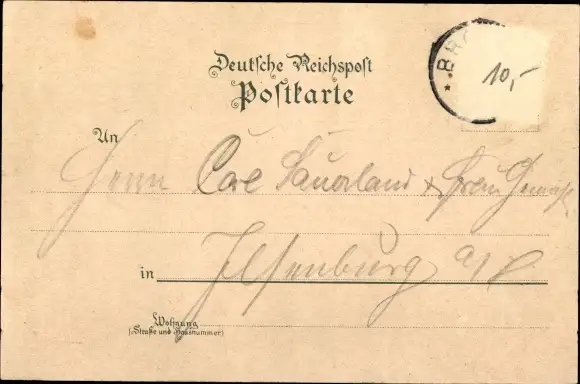 Deutsche Reichspost
Postkarte
BRA
10,-
An
Herrn Carl Sauerland & Frau Gemahl
in Ilsenburg a/H
Wohnung
(Straße und Hausnummer)